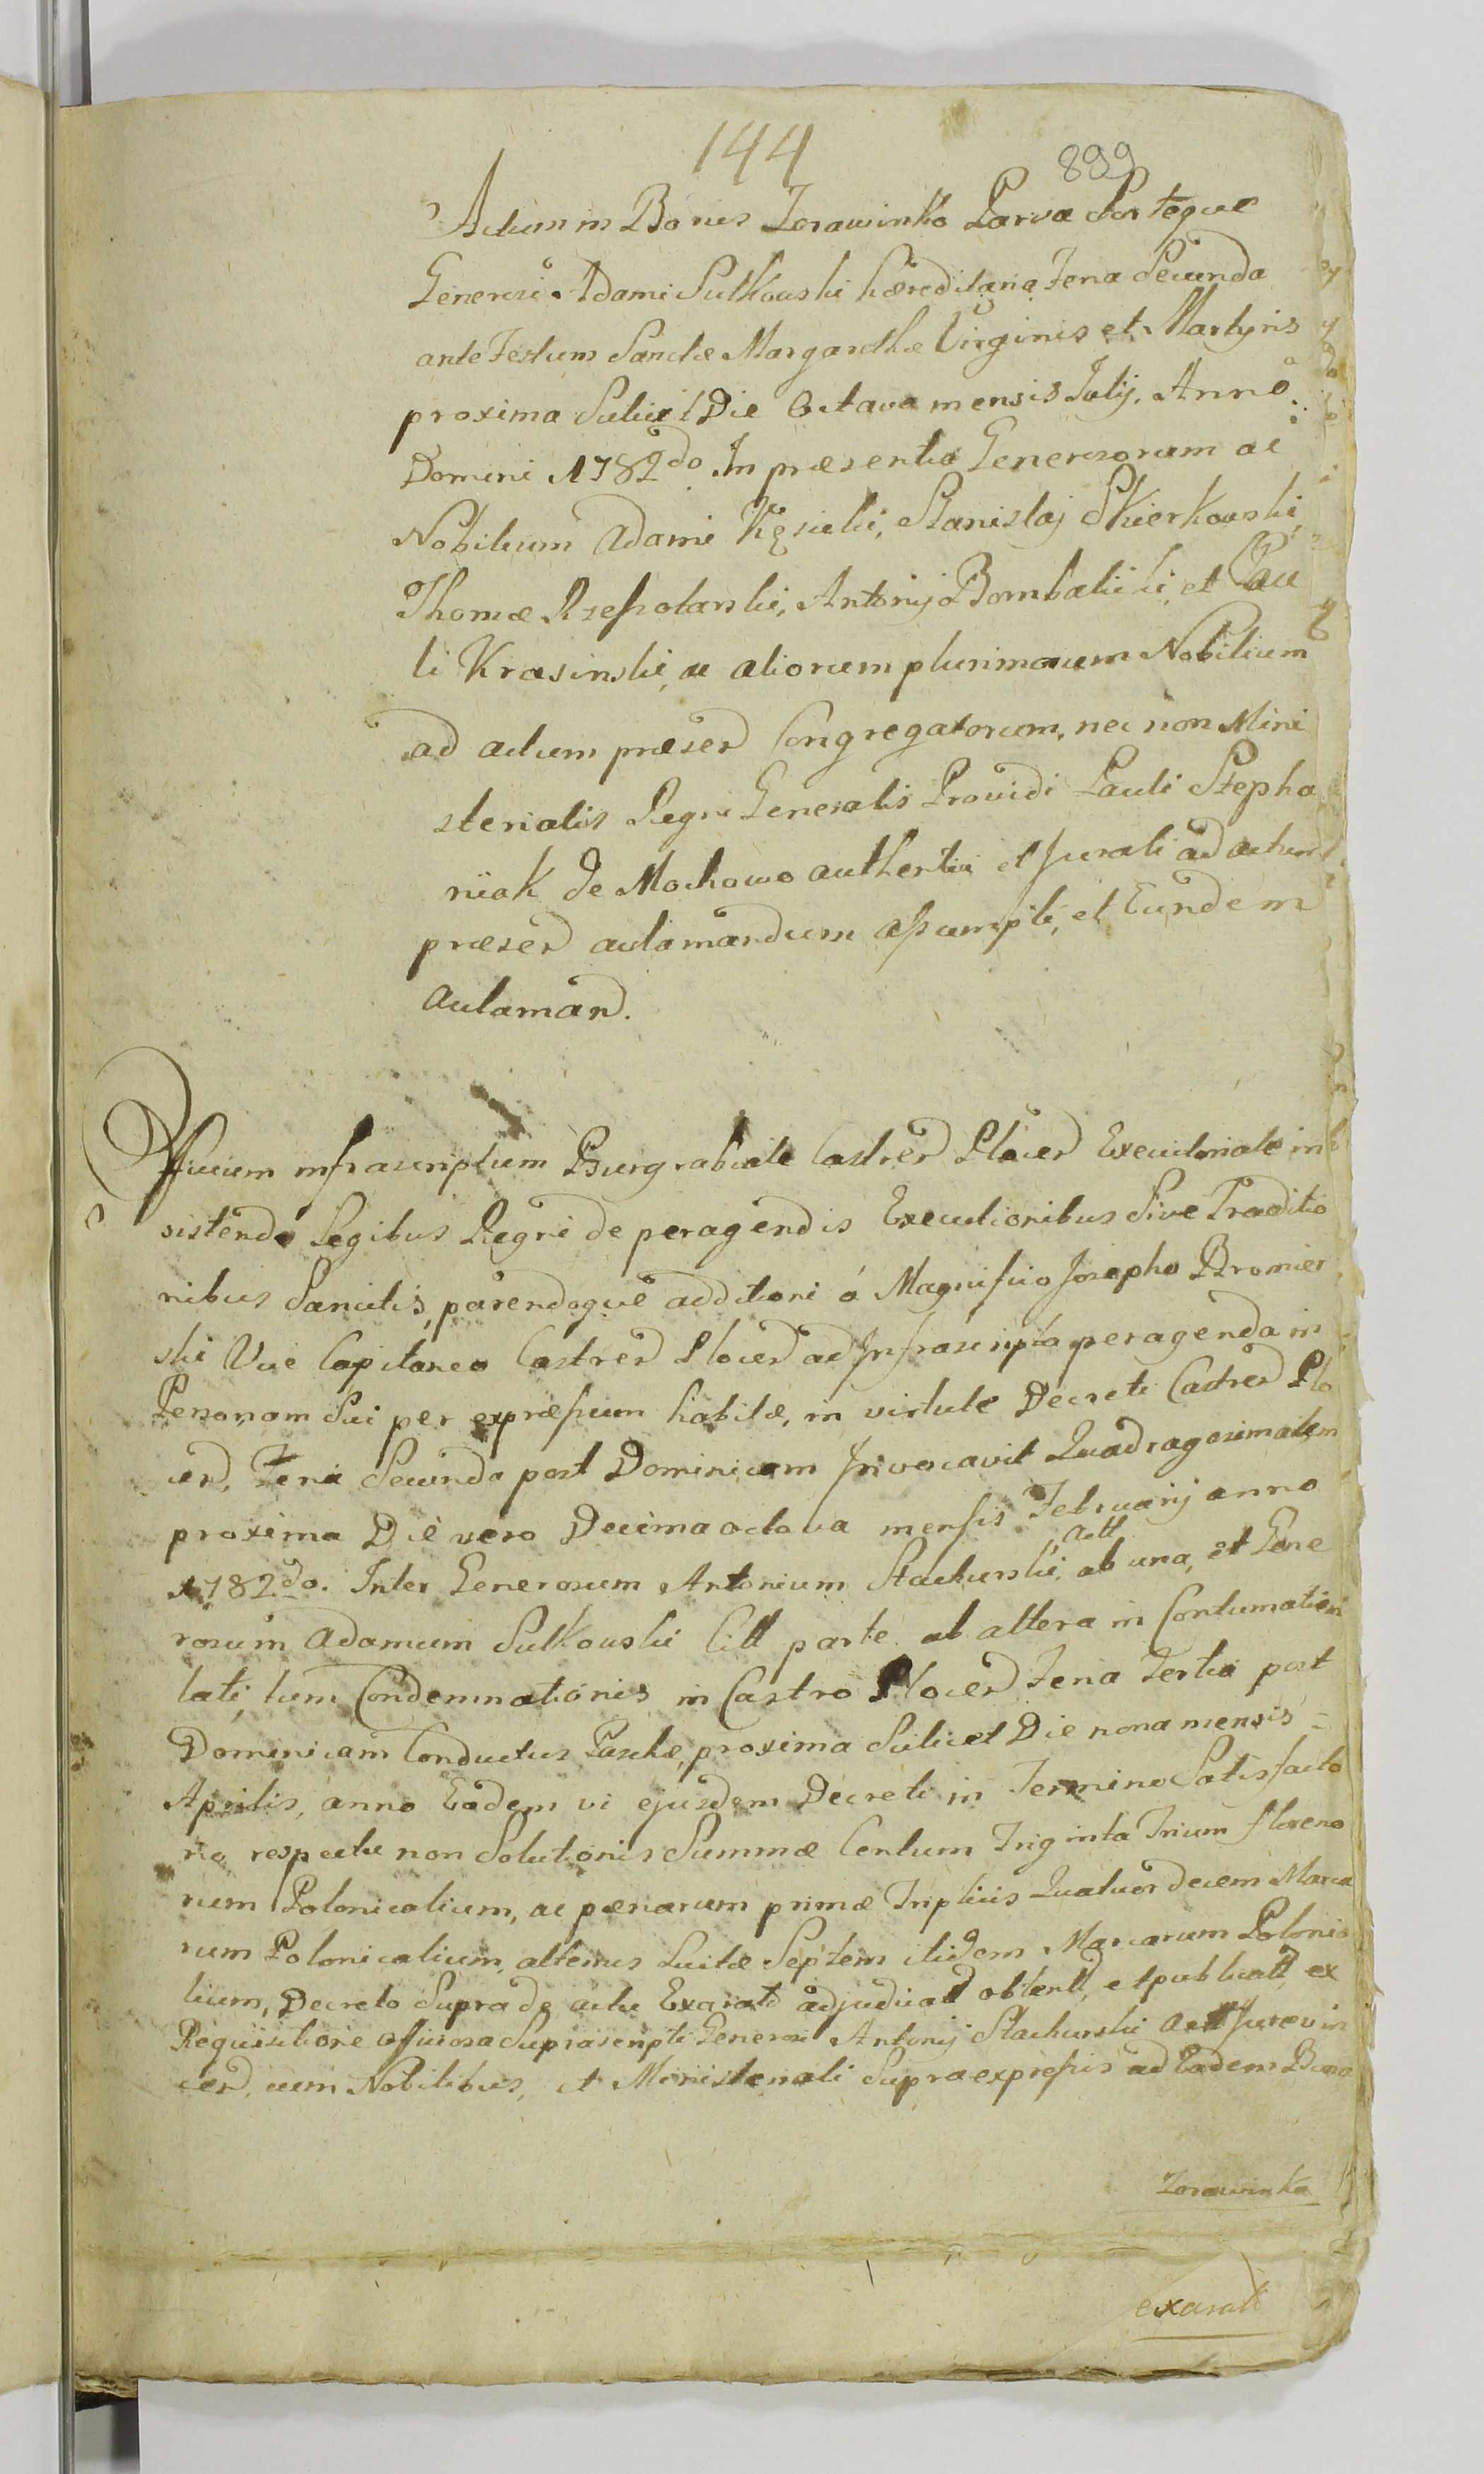 144
899
Actum in Bonis Zorawinko Parva Sortegue
Generosi Adami Sulkowski hæreditaria Feria Secunda
ante Festum Sanctæ Margarethæ Virginis et Martyris
proxima Scilicet Die Octava mensis Julij, Anno
Domini 1782do In præsentia Generosorum ac
Nobilium Adami Kęsicki, Stanislaj Skierkowski,
Thomæ Rzeszotarski, Antonij Bombalicki, et Pau
li Krasinski, ac aliorum plurimorum Nobilium
ad actum præsen Congregatorum, nec non Mini
sterialis Regni Generalis Providi Pauli Stepha
niak de Mochowo authentici et jurati ad actum
præsen aclamandum assumpti, et Eundem
aclaman.
Officium infrascriptum Burgrabiale Castren Plocen Executoriale in
sistendo Legibus Regni de peragendis Executionibus Sive Traditio
nibus Sancitis, parendoque additioni á Magnifico Josepho Bromier
ski Vice Capitaneo Castren Plocen ad Infrascripta peragenda in
Personam Sui per expressum habitæ, in virtute Decreti Castren Plo
cen, Feria Secunda post Dominicam Invocavit Quadragesimalem
proxima Die vero Decima octava mensis Februarij anno
1782do. Inter Generosum Antonium Stachurski, Actt ab una, et Gene
rosum Adamum Sulkowski Citt parte ab altera in Contumatiem
lati, tum Condemnationis in Castro Plocen Feria Tertia post
Dominicam Conductus Paschæ, proxima Scilicet Die nona mensis =
Aprilis, anno Eodem vi ejusdem Decreti in Termino Satisfacto
rio respectu non Solutionis Summæ Centum Triginta Trium floreno
rum Polonicalium, ac pænarum primæ Triplicis Quatuordecem Marca
rum Polonicalium, alterius Luitæ Septem itidem Marcarum Polonica
lium, Decreto Supra de actu Exarato adjudicatt obtentt, et publicatt, ex
Requisitione officiosa Suprascripti Generosi Antonij Stachurski Actt Jurevin
cen, cum Nobilibus, et Ministeriali Supraexpressis ad Eadem Bona
Zorawinko
exaratt